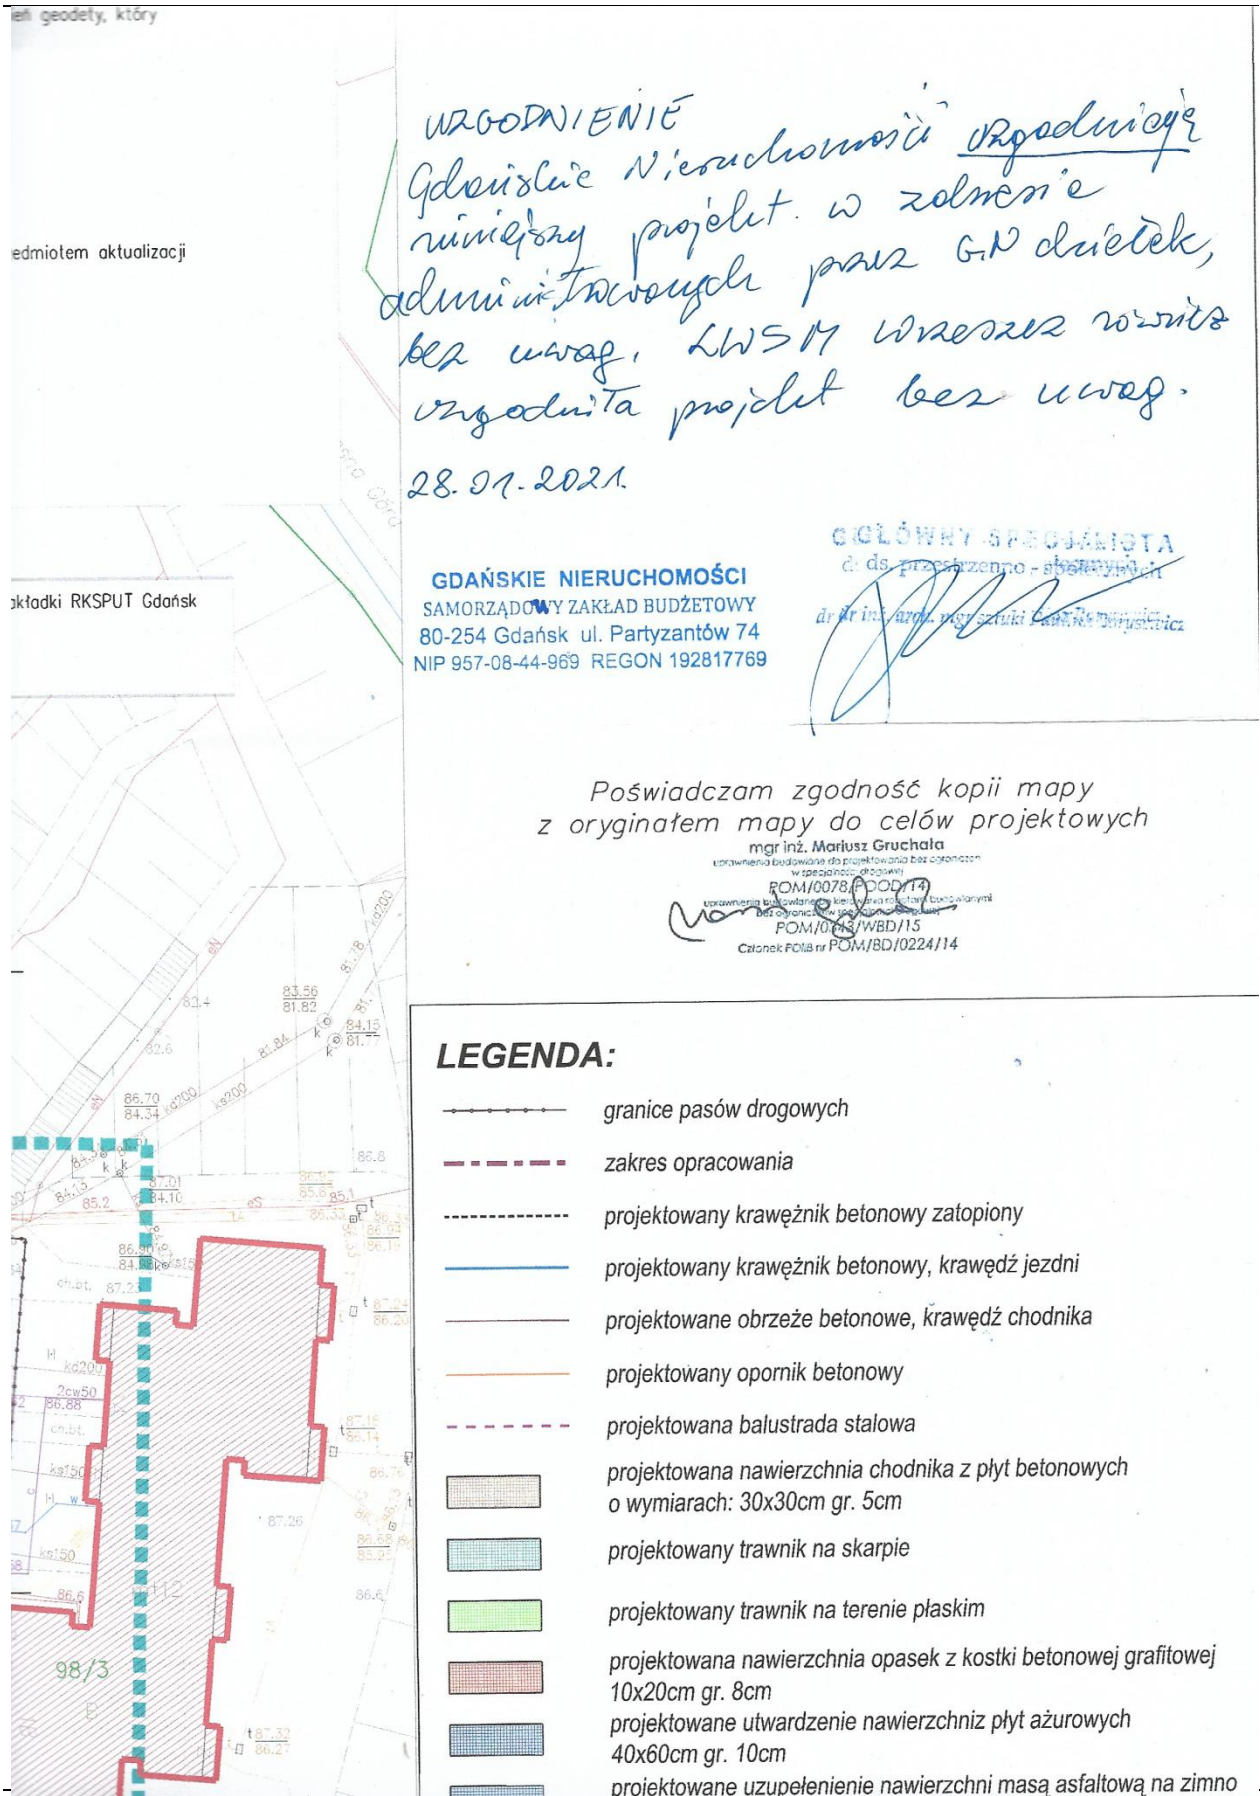 eń geodety, który
UZGODNIENIE
Gdańskie Nieruchomości uzgadniają
niniejszy projekt w zakresie
administrowanych przez G.N działek,
bez uwag. LWSM Wrzeszcz również
uzgodniła projekt bez uwag.
28.01.2021.
edmiotem aktualizacji
akładki RKSPUT Gdańsk
GDAŃSKIE NIERUCHOMOŚCI
SAMORZĄDOWY ZAKŁAD BUDŻETOWY
80-254 Gdańsk ul. Partyzantów 74
NIP 957-08-44-969 REGON 192817769
GŁÓWNY SPECJALISTA
ds. przestrzenno -
dr inż. arch. mgr sztuki
Poświadczam zgodność kopii mapy
z oryginałem mapy do celów projektowych
mgr inż. Mariusz Gruchała
uprawnienia budowlane do projektowania bez ograniczeń
w specjalności drogowej
POM/0078/POOD/14
uprawnienia budowlane do kierowania robotami budowlanymi
bez ograniczeń w specjalności drogowej
POM/0343/WBD/15
Członek POIIB nr POM/BD/0224/14
LEGENDA:
granice pasów drogowych
zakres opracowania
projektowany krawężnik betonowy zatopiony
projektowany krawężnik betonowy, krawędź jezdni
projektowane obrzeże betonowe, krawędź chodnika
projektowany opornik betonowy
projektowana balustrada stalowa
projektowana nawierzchnia chodnika z płyt betonowych
o wymiarach: 30x30cm gr. 5cm
projektowany trawnik na skarpie
projektowany trawnik na terenie płaskim
projektowana nawierzchnia opasek z kostki betonowej grafitowej
10x20cm gr. 8cm
projektowane utwardzenie nawierzchniz płyt ażurowych
40x60cm gr. 10cm
projektowane uzupełenienie nawierzchni masą asfaltową na zimno
kd200
81.78
eN
82.4
83.56
81.82
k
84.15
81.77
k
82.6
81.84
86.70
84.34
kd200
ks200
eN
86.8
k
k
84.15
87.01
84.10
85.2
eS
85.1
t
86.33
86.90
ch.bt.
87.23
t
86.20
kd200
2cw50
86.88
ch.bt.
87.15
86.14
t
ks150
86.76
w
87.26
86.68
ks150
86.6
86.6
98/3
B
t
87.32
86.27